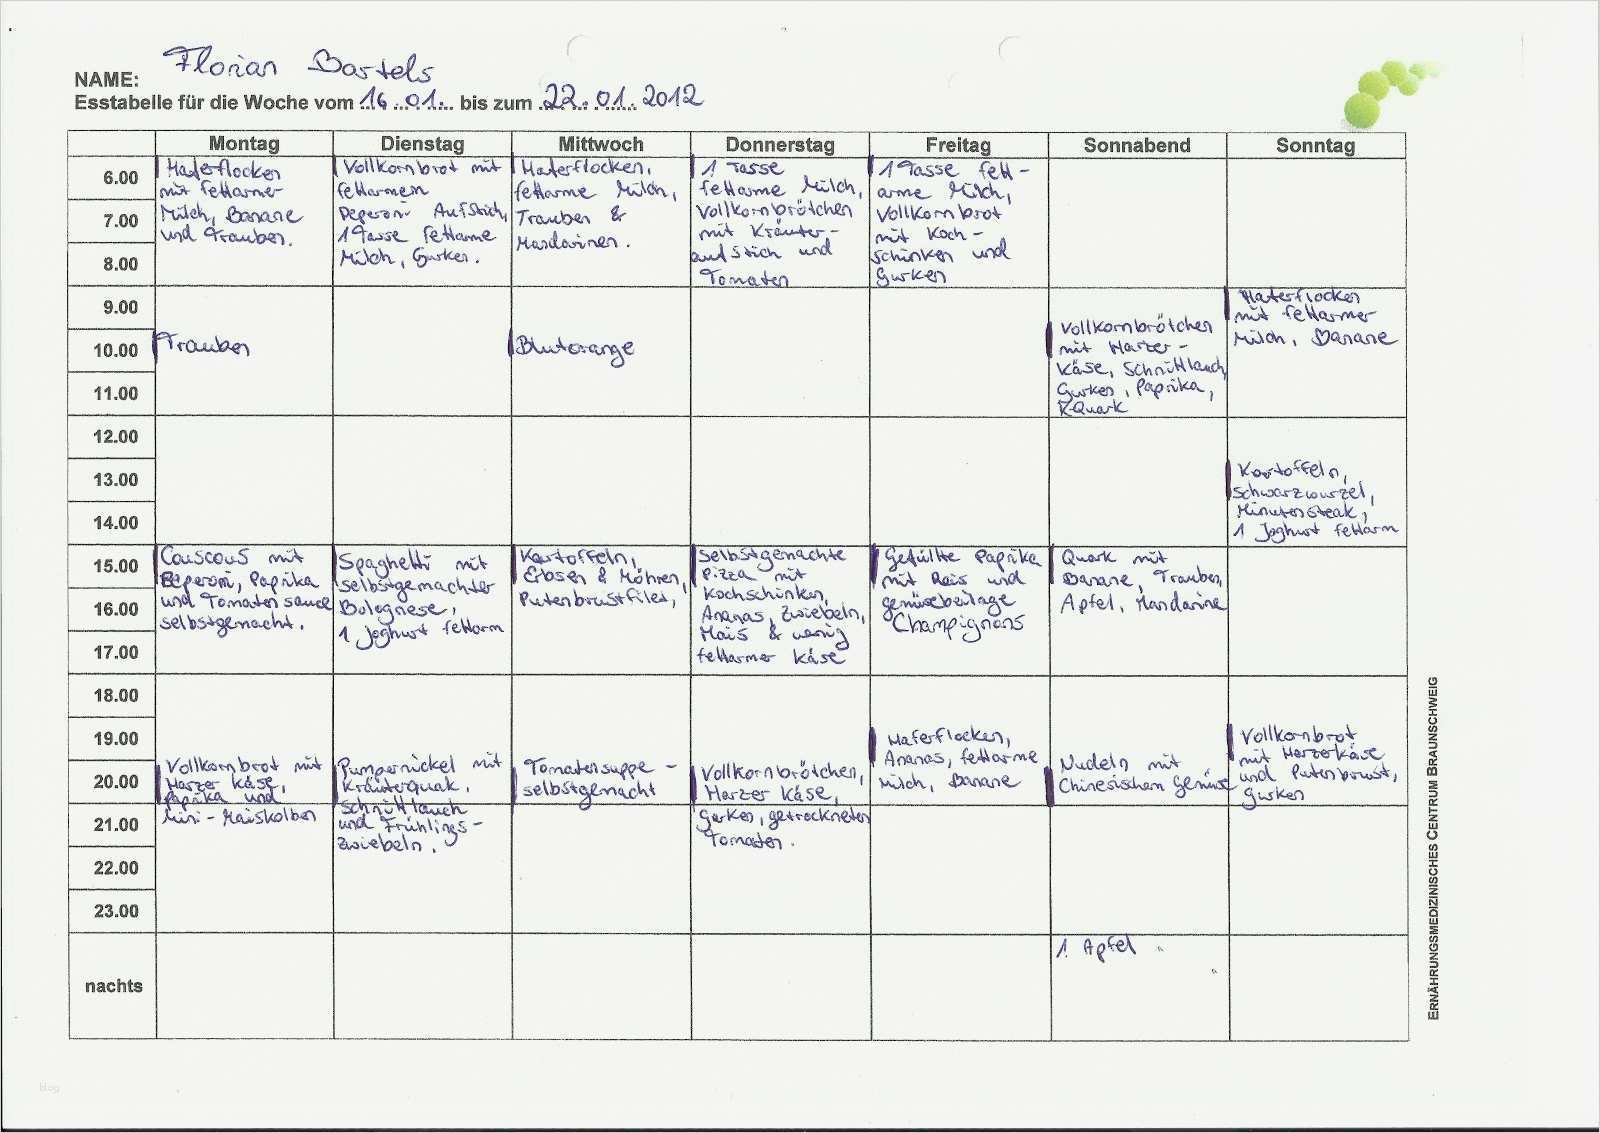 NAME: Florian Bartels
Esstabelle für die Woche vom 16.01. bis zum 22.01.2012
Montag Dienstag Mittwoch Donnerstag Freitag Sonnabend Sonntag
6.00
7.00
8.00
Haferflocken
mit fettarmer
Milch, Banane
und Trauben.
Vollkornbrot mit
fettarmem
Peperoni Aufstrich,
1 Tasse fettarme
Milch, Gurken.
Haferflocken,
fettarme Milch,
Trauben &
Mandarinen.
1 Tasse
fettarme Milch,
Vollkornbrötchen
mit Kräuter-
aufstrich und
Tomaten
1 Tasse fett-
arme Milch,
Vollkornbrot
mit Koch-
schinken und
Gurken
9.00
10.00
11.00
Trauben
Blutorange
Vollkornbrötchen
mit Harzer-
Käse, Schnittlauch,
Gurken, Paprika,
K-Quark
Haferflocken
mit fettarmer
Milch, Banane
12.00
13.00
14.00
Kartoffeln,
Schwarzwurzel,
Minutensteak,
1 Joghurt fettarm
15.00
16.00
17.00
Couscous mit
Peperoni, Paprika
und Tomatensauce
selbstgemacht.
Spaghetti mit
selbstgemachter
Bolognese,
1 Joghurt fettarm
Kartoffeln,
Erbsen & Möhren,
Putenbrustfilet,
Selbstgemachte
Pizza mit
Kochschinken,
Ananas, Zwiebeln,
Mais & wenig
fettarmer Käse
Gefüllte Paprika
mit Reis und
Gemüsebeilage
Champignons
Quark mit
Banane, Trauben,
Apfel, Mandarine
18.00
19.00
20.00
21.00
22.00
23.00
Vollkornbrot mit
Harzer Käse,
Paprika und
Mini-Maiskolben
Pumpernickel mit
Kräuterquak,
Schnittlauch
und Frühlings-
zwiebeln.
Tomatensuppe -
selbstgemacht
Vollkornbrötchen,
Harzer Käse,
Gurken, getrockneten
Tomaten.
Haferflocken,
Ananas, fettarme
Milch, Banane
Nudeln mit
Chinesischem Gemüse
Vollkornbrot
mit Harzerkäse
und Putenbrust,
Gurken
nachts
1 Apfel
ERNÄHRUNGSMEDIZINISCHES CENTRUM BRAUNSCHWEIG
blog